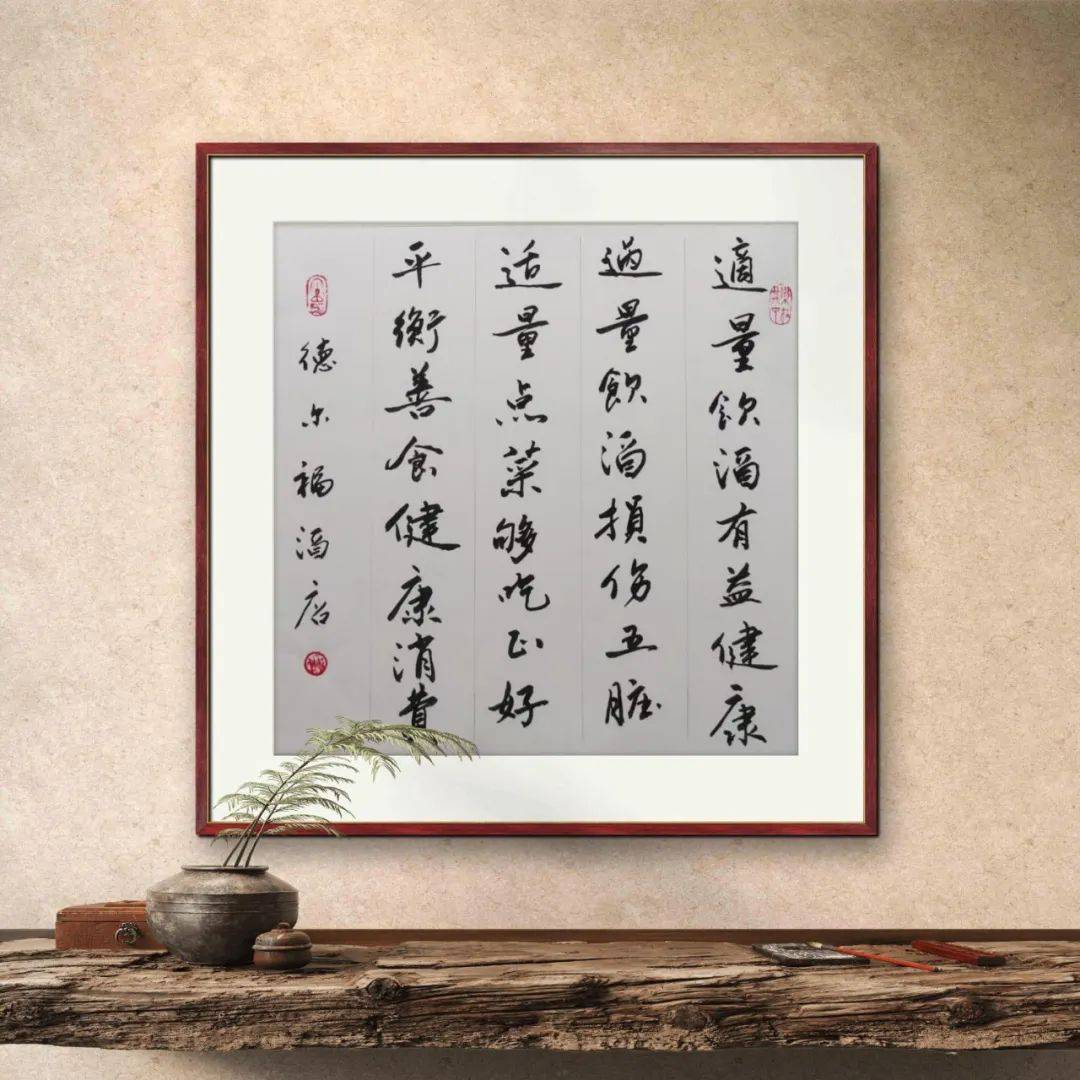 適量飲酒有益健康
過量飲酒損伤五脏
适量点菜够吃正好
平衡善食健康消費
德尔福酒店